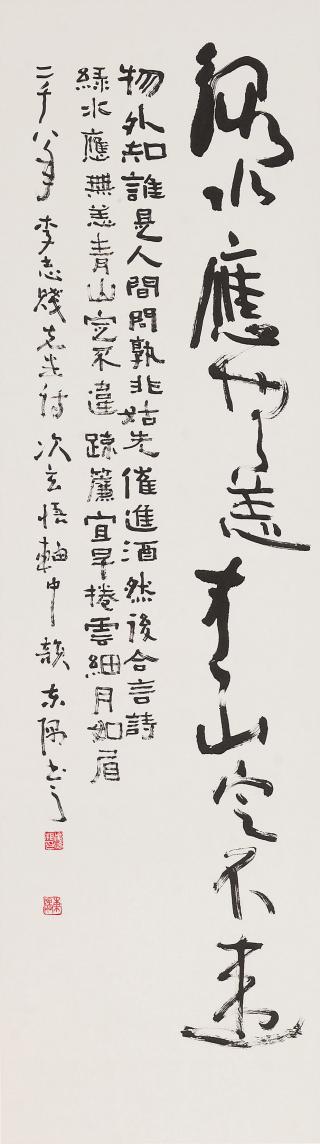 綠水應無恙青山定不違
物外知誰是人間問孰非姑先催進酒然後合言詩
綠水應無恙青山定不違踈簾宜早捲雲細月如眉
二千八年 李志賤先生詩 次玄悟軸中韻